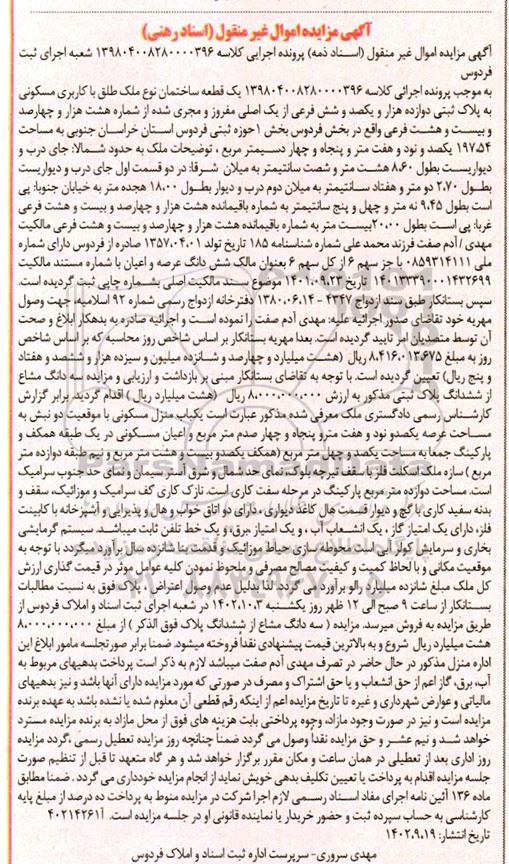 آگهی مزایده اموال غیر منقول (اسناد رهنی)
آگهی مزایده اموال غیر منقول (اسناد ذمه) پرونده اجرایی کلاسه ۱۳۹۸۰۴۰۰۸۲۸۰۰۰۰۳۹۶ شعبه اجرای ثبت
فردوس
به موجب پرونده اجرائی کلاسه ۱۳۹۸۰۴۰۰۸۲۸۰۰۰۰۳۹۶ یک قطعه ساختمان نوع ملک طلق با کاربری مسکونی
به پلاک ثبتی دوازده هزار و یکصد و شش فرعی از یک اصلی مفروز و مجری شده از شماره هشت هزار و چهارصد
و بیست و هشت فرعی واقع در بخش فردوس بخش ۱ حوزه ثبتی فردوس استان خراسان جنوبی به مساحت
۱۹۷.۵۴ یکصد و نود و هفت متر و پنجاه و چهار دسیمتر مربع ، توضیحات ملک به حدود شمالا: جای درب و
دیواریست بطول ۸.۶۰ هشت متر و شصت سانتیمتر به میلان شرقا: در دو قسمت اول جای درب و دیواریست
بطول ۲.۷۰ دو متر و هفتاد سانتیمتر به میلان دوم درب و دیوار بطول ۱۸.۰۰ هجده متر به خیابان جنوبا: پی
است بطول ۹.۴۵ نه متر و چهل و پنج سانتیمتر به شماره باقیمانده هشت هزار و چهارصد و بیست و هشت فرعی
غربا: پی است بطول ۲۰.۰۰ بیست متر به شماره باقیمانده هشت هزار و چهارصد و بیست و هشت فرعی مالکیت
مهدی / آدم صفت فرزند محمد علی شماره شناسنامه ۱۸۵ تاریخ تولد ۱۳۵۷.۰۴.۰۱ صادره از فردوس دارای شماره
ملی ۰۸۵۹۳۱۴۱۱۱ با جز سهم ۶ از کل سهم ۶ بعنوان مالک شش دانگ عرصه و اعیان با شماره مستند مالکیت
۱۴۰۱۳۳۹۰۰۰۱۴۳۲۶۹۹ تاریخ ۱۴۰۱.۰۹.۲۳ موضوع سند مالکیت اصلی بشماره چاپی ثبت گردیده است.
سپس بستانکار طبق سند ازدواج ۴۳۴۷ - ۱۳۸۰.۰۶.۱۴ دفترخانه ازدواج رسمی شماره ۹۲ اسلامیه، جهت وصول
مهریه خود تقاضای صدور اجرائیه علیه: مهدی آدم صفت را نموده است و اجرائیه صادره به بدهکار ابلاغ و صحت
آن توسط متصدیان امر تایید گردیده است. بعدا مهریه بستانکار بر اساس شاخص روز محاسبه که بر اساس شاخص
روز به مبلغ ۸.۴۱۶.۰۱۳.۶۷۵ ریال (هشت میلیارد و چهارصد و شانزده میلیون و سیزده هزار و ششصد و هفتاد
و پنج ریال) تعیین گردیده است. با توجه به تقاضای بستانکار مبنی بر بازداشت و ارزیابی و مزایده سه دانگ مشاع
از ششدانگ پلاک ثبتی مذکور به ارزش ۸.۰۰۰.۰۰۰.۰۰۰ ریال (هشت میلیارد ریال) اقدام گردید. برابر گزارش
کارشناس رسمی دادگستری ملک معرفی شده مذکور عبارت است یکباب منزل مسکونی با موقعیت دو نبش به
مساحت عرصه یکصدو نود و هفت مترو پنجاه و چهار صدم متر مربع و اعیان مسکونی در یک طبقه همکف و
پارکینگ جمعا به مساحت یکصد و چهل متر مربع (همکف یکصدو بیست و هشت متر مربع و نیم طبقه دوازده متر
مربع ) سازه ملک اسکلت فلز با سقف تیرچه بلوک، نمای حد شمال و شرق آستر سیمان و نمای حد جنوب سرامیک
است. مساحت دوازده متر مربع پارکینگ در مرحله سفت کاری است. نازک کاری کف سرامیک و موزائیک، سقف و
بدنه سفید کاری با گچ و دیوار قسمت هال کاغذ دیواری ، دارای دو اتاق خواب و هال و پذیرایی و آشپزخانه با کابینت
فلز، دارای یک امتیاز گاز ، یک انشعاب آب ، و یک امتیاز ،برق، و یک خط تلفن ثابت میباشد. سیستم گرمایشی
بخاری و سرمایش کولر آبی است محوطه سازی حیاط موزائیک و قدمت بنا شانزده سال برآورد میگردد با توجه به
موقعیت مکانی و با لحاظ کمیت و کیفیت مصالح مصرفی و ملحوظ نمودن کلیه عوامل موثر در قیمت گذاری ارزش
کل ملک مبلغ شانزده میلیارد ریال برآورد می گردد لذا بدلیل عدم وصول اعتراض پلاک فوق به نسبت مطالبات
بستانکار از ساعت ۹ صبح الی ۱۲ ظهر روز یکشنبه ۱۴۰۲.۱۰.۳ در شعبه اجرای ثبت اسناد و املاک فردوس از
طریق مزایده به فروش میرسد. مزایده ( سه دانگ مشاع از ششدانگ پلاک فوق الذکر ) از مبلغ ۸.۰۰۰.۰۰۰.۰۰۰
هشت میلیارد ریال شروع و به بالاترین قیمت پیشنهادی نقداً فروخته میشود. ضمنا برابر صورتجلسه مامور ابلاغ این
اداره منزل مذکور در حال حاضر در تصرف مهدی آدم صفت میباشد لازم به ذکر است پرداخت بدهیهای مربوط به
آب، برق، گاز اعم از حق انشعاب و یا حق اشتراک و مصرف در صورتی که مورد مزایده دارای آنها باشد و نیز بدهیهای
مالیاتی و عوارض شهرداری و غیره تا تاریخ مزایده اعم از اینکه رقم قطعی آن معلوم شده یا نشده باشد به عهده برنده
مزایده است و نیز در صورت وجود مازاد، وجوه پرداختی بابت هزینه های فوق از محل مازاد به برنده مزایده مسترد
خواهد شد و نیم عشر و حق مزایده نقداً وصول می گردد ضمناً چنانچه روز مزایده تعطیل رسمی ،گردد مزایده
روز اداری بعد از تعطیلی در همان ساعت و مکان مقرر برگزار خواهد شد و هر گاه متعهد تا قبل از تنظیم صورت
جلسه مزایده اقدام به پرداخت یا تعیین تکلیف بدهی خویش نماید از انجام مزایده خودداری می گردد . ضمنا مطابق
ماده ۱۳۶ آئین نامه اجرای مفاد اسناد رسمی لازم اجرا شرکت در مزایده منوط به پرداخت ده درصد از مبلغ پایه
کارشناسی به حساب سپرده ثبت و حضور خریدار یا نماینده قانونی او در جلسه مزایده است. آ۴۰۲۱۴۲۶۱
تاریخ انتشار: ۱۴۰۲.۹.۱۹
مهدی سروری- سرپرست اداره ثبت اسناد و املاک فردوس